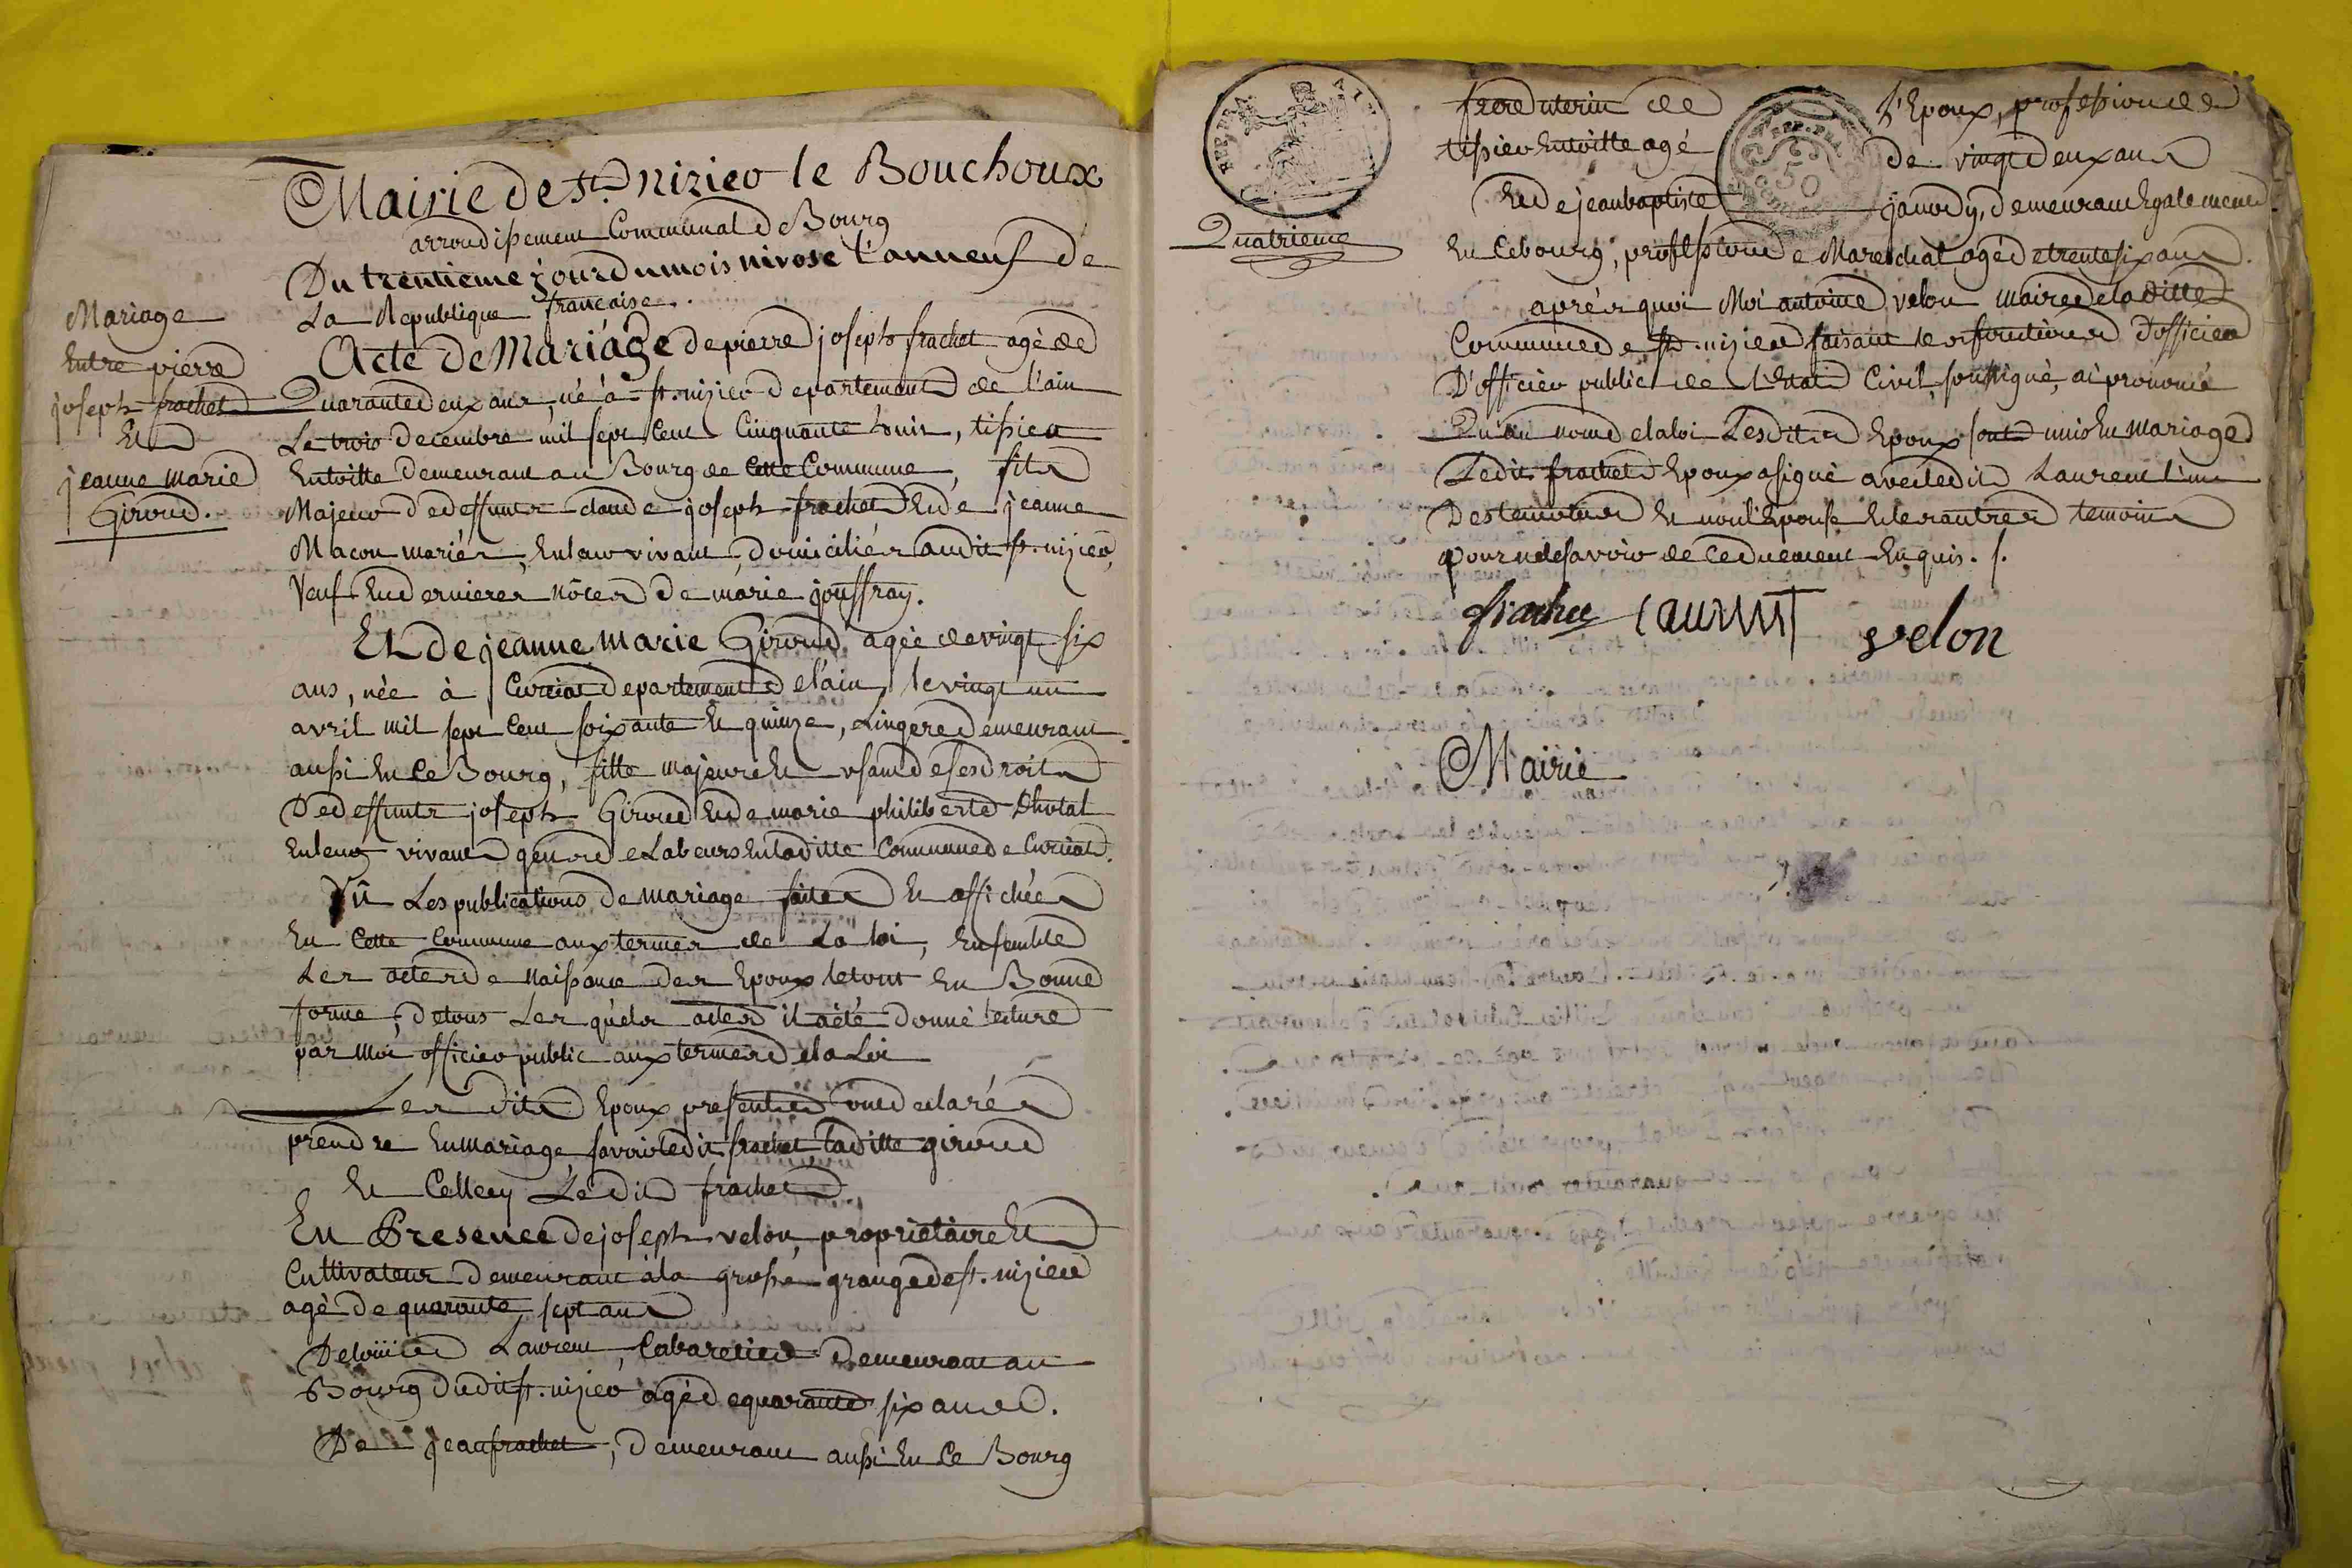 Mairie de st. nizier le Bouchoux
arrondissement Communal de Bourg
Du trentieme jour du mois nivose l'an neuf de
La Republique francaise.
Mariage
Entre pierre
joseph frachet
Et
jeanne marie
Giroud.
Acte de Mariage de pierre joseph frachet agé de
Quarante deux ans, né à st. nizier departement de l'ain
Le trois decembre mil sept Cent Cinquante huit, tissier
En toille demeurant au Bourg de Cette Commune, fils
Majeur de deffunts claude joseph frachet Et de jeanne
Macon mariés, En leur vivant, domiciliés audit st. nizier,
Veuf En dernieres nôces de marie jouffray.
Et de jeanne marie Giroud, agée de vingt six
ans, née à Curciat departement de l'ain, le vingt un
avril mil sept Cent soixante Et quinze, Lingere demeurant
aussi En Ce Bourg, fille majeure Et usant de ses droits
De deffunts joseph Giroud Et de marie philiberte
En leur vivant de Labeurs En laditte Commune de Curciat.
Vû Les publications de mariage faites Et affichées
En Cette Commune aux termes de La loi, Ensemble
Les actes de Naissance des Epoux le tout En Bonne
forme, de tous Les quels actes il a été donné lecture
par Moi officier public aux termes de la Loi
Les dits Epoux presents ont declaré
prendre En mariage, savoir ledit frachet laditte giroud
Et Celle cy Le dit frachet.
En Presence de joseph velon, proprietaire Et
Cultivateur demeurant à la grosse grange de st. nizier
agé de quarante sept ans
De Laurent, Cabaretier demeurant au
Bourg dudit st. nizier agé de quarante six ans.
De jean frachet, demeurant aussi En Ce Bourg
Quatrieme
frere uterin de l'Epoux, profession de
tissier En toille agé de vingt deux ans
Et de jean baptiste demeurant Egalement
En Ce bourg, profession de Marechal agé de trente six ans.
aprés quoi Moi antoine velon maire de laditte
Commune de st. nizier faisant les fonctions d'officier
D'officier public de l'Etat Civil, soussigné, ai prononcé
Qu'au nom de la loi Lesdits Epoux sont unis En mariage
Ledit frachet Epoux a signé avec ledit Laurent l'un
Des temoins Et non l'Epouse Et les autres temoins
pour ne le savoir de Ce duement Enquis. /.
frachet Laurent velon
Mairie